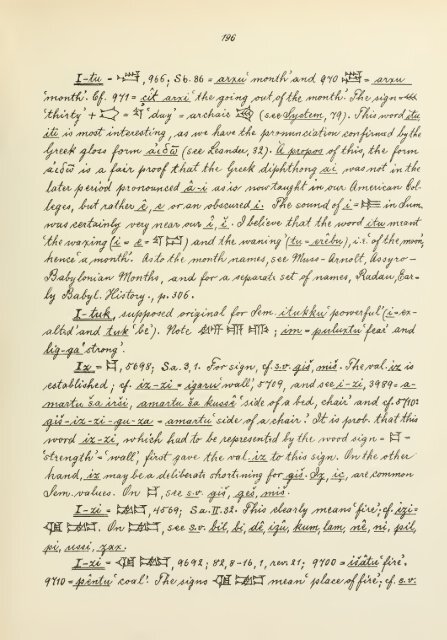 196
I-tu = 𒌗, 966; Sb. 86 = arxu 'month' and 970 = arxu
'month'. Cf. 971 = çît arxi 'the going out of the month'. The sign =
'thirty' + = 'day' = archaic (see System, 79). This word itu
iti is most interesting, as we have the pronunciation confirmed by the
Greek gloss form (see Leander, 32). À propos of this, the form
is a fair proof that the Greek diphthong αι was not in the
later period pronounced â-i as is now taught in our American Col-
leges, but rather ê, e or an obscured i. The sound of i = in Sum.
was certainly very near our ê, ĕ. I believe that the word itu meant
'the waxing (i = e = ) and the waning (tu = erêbu), i.e. of the moon,
hence 'a month'. As to the month names, see Muss-Arnolt, Assyro-
Babylonian Months, and for a separate set of names, Radau, Ear-
ly Babyl. History, p. 306.
I-tuk, supposed original for Sem. itukku 'powerful' (i = ex-
alted' and tuk 'be'). Note ; im = puluxtu 'fear' and
lig-ga 'strong'.
Iz = , 5698; Sa. 3, 1. For sign, cf. s.v. giš, miš. The val. iz is
established; cf. iz-zi = igaru 'wall', 5709, and see i-zi, 3989 = a-
martu ša irši, amartu ša kussî 'side of a bed, chair' and cf. 5710:
giš-iz-zi-gu-za = amartu 'side of a chair'. It is prob. that this
word iz-zi, which had to be represented by the wood sign = =
'strength' = 'wall', first gave the val. iz to this sign. On the other
hand, iz may be a deliberate shortening for giš. Iz, iç, are common
Sem. values. On , see s.v. giš, geš, miš.
I-zi = , 4569; Sa. II. 32. This clearly means 'fire'; cf. izi =
. On , see s.v. bil, bi, dê, izû, kum, lam, nê, ni, pil,
pi, ussi, zax.
I-zi = , 9692; 82, 8-16, 1, rev. 21; 9700 = išâtu 'fire'.
9710 = pîntu 'coal'. The signs mean 'place of fire'; cf. s.v.